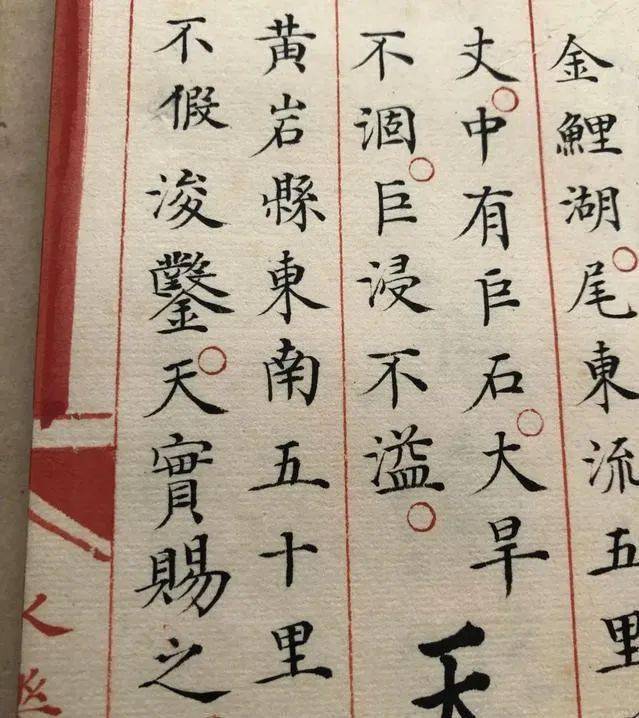 金鯉湖尾東流五里
丈中有巨石大旱
不涸巨浸不溢
天
黃岩縣東南五十里
不假浚鑿天實賜之